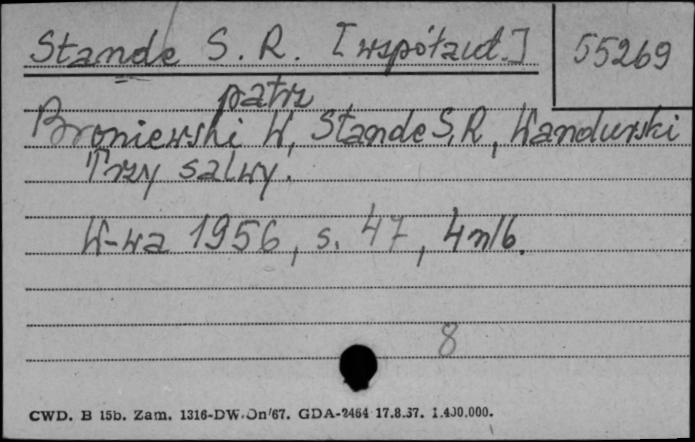 Stande S. R. [współaut.]
55269
patrz
Broniewski W, Stande S. R, Wandurski
Trzy salwy.
W-wa 1956, s. 47, 4 nlb.
8
CWD. B 15b. Zam. 1316-DW.Dn/67. GDA-2464 17.8.67. 1.400.000.